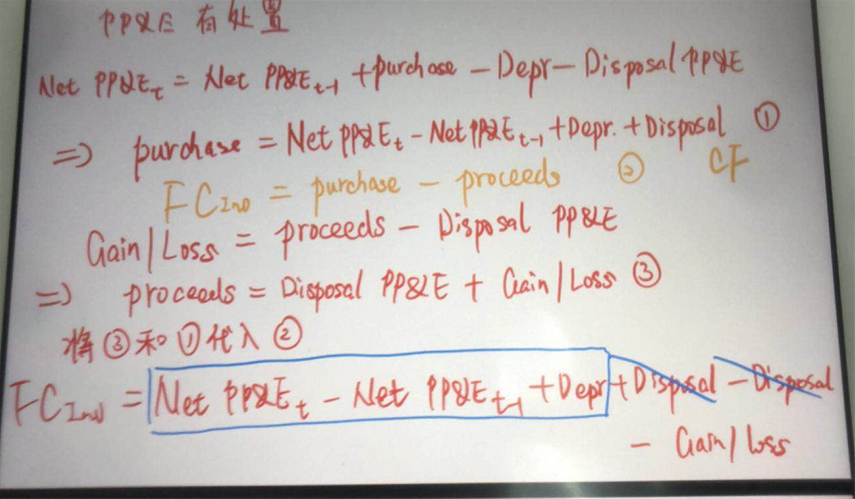 PP&E 有处置
Net PP&E_t = Net PP&E_t-1 + purchase - Depr - Disposal PP&E
=> purchase = Net PP&E_t - Net PP&E_t-1 + Depr. + Disposal ①
FC_Inv = purchase - proceeds ② CF
Gain/Loss = proceeds - Disposal PP&E
=> proceeds = Disposal PP&E + Gain/Loss ③
将③和①代入②
FC_Inv = Net PP&E_t - Net PP&E_t-1 + Depr + Disposal - Disposal
- Gain/loss